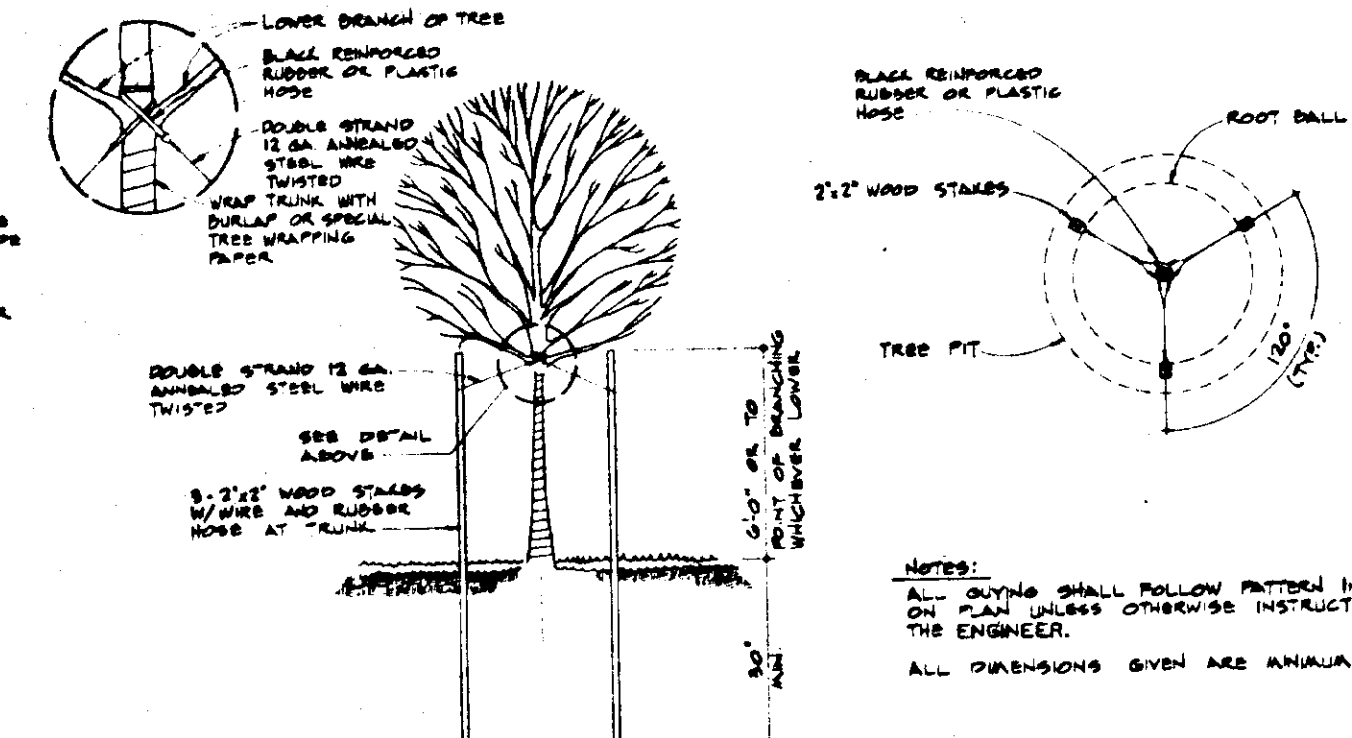 LOWER BRANCH OF TREE
BLACK REINFORCED
RUBBER OR PLASTIC
HOSE
DOUBLE STRAND
12 GA. ANNEALED
STEEL WIRE
TWISTED
WRAP TRUNK WITH
BURLAP OR SPECIAL
TREE WRAPPING
PAPER
DOUBLE STRAND 12 GA.
ANNEALED STEEL WIRE
TWISTED
SEE DETAIL
ABOVE
3-2"x2" WOOD STAKES
W/ WIRE AND RUBBER
HOSE AT TRUNK
6'-0" OR TO
POINT OF BRANCHING
WHICHEVER LOWER
30"
MIN.
BLACK REINFORCED
RUBBER OR PLASTIC
HOSE
ROOT BALL
2"x2" WOOD STAKES
TREE PIT
120°
(TYP.)
NOTES:
ALL GUYING SHALL FOLLOW PATTERN
ON PLAN UNLESS OTHERWISE INSTRUCT
THE ENGINEER.
ALL DIMENSIONS GIVEN ARE MINIMUM